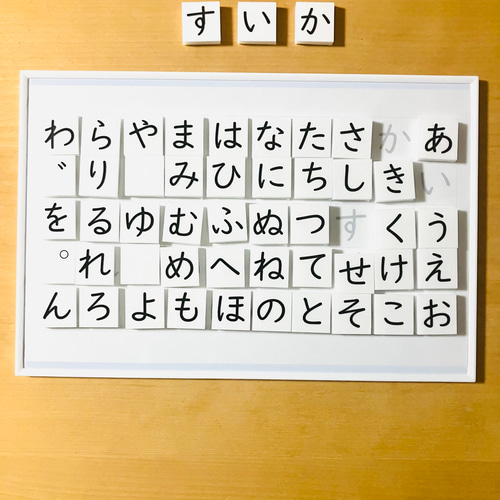 すいか
あいうえお
かきくけこ
さしすせそ
たちつてと
なにぬねの
はひふへほ
まみむめも
やゆよ
らりるれろ
わ゛を゜ん